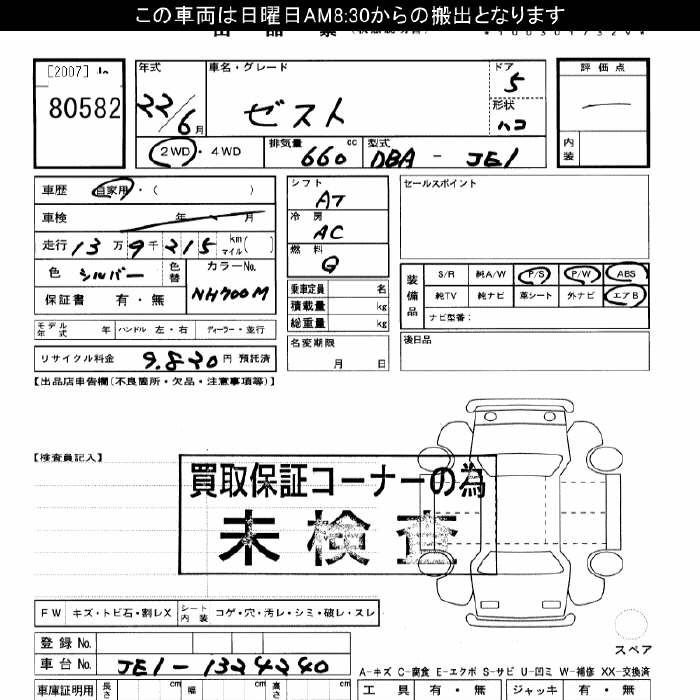 この車両は日曜日AM8:30からの搬出となります
[2007]
80582
年式 22/6月
車名・グレード ゼスト
ドア 5
形状 ハコ
2WD・4WD
排気量 660 cc
型式 DBA - JE1
評価点
内装
車歴 自家用・( )
車検 年 月
走行 13万9千215 km マイル( )
色 シルバー 色替 カラーNo. NH700M
保証書 有・無
モデル年式 年 ハンドル 左・右 ディーラー・並行
リサイクル料金 9.820円 預託済
シフト AT
冷房 AC
燃料 G
乗車定員 名
積載量 kg
総重量 kg
名変期限 月 日
セールスポイント
装備品
S/R 純A/W P/S P/W ABS
純TV 純ナビ 革シート 外ナビ エアB
ナビ型番:
後日品
【出品店申告欄(不良箇所・欠品・注意事項等)】
【検査員記入】
買取保証コーナーの為
未検査
FW キズ・トビ石・割レX シート内装 コゲ・穴・汚レ・シミ・破レ・スレ
スペア
登録No.
車台No. JE1-1324240
A-キズ C-腐食 E-エクボ S-サビ U-凹ミ W-補修 XX-交換済
車庫証明用 長さ cm 幅 cm 高さ cm
工具 有・無 ジャッキ 有・無